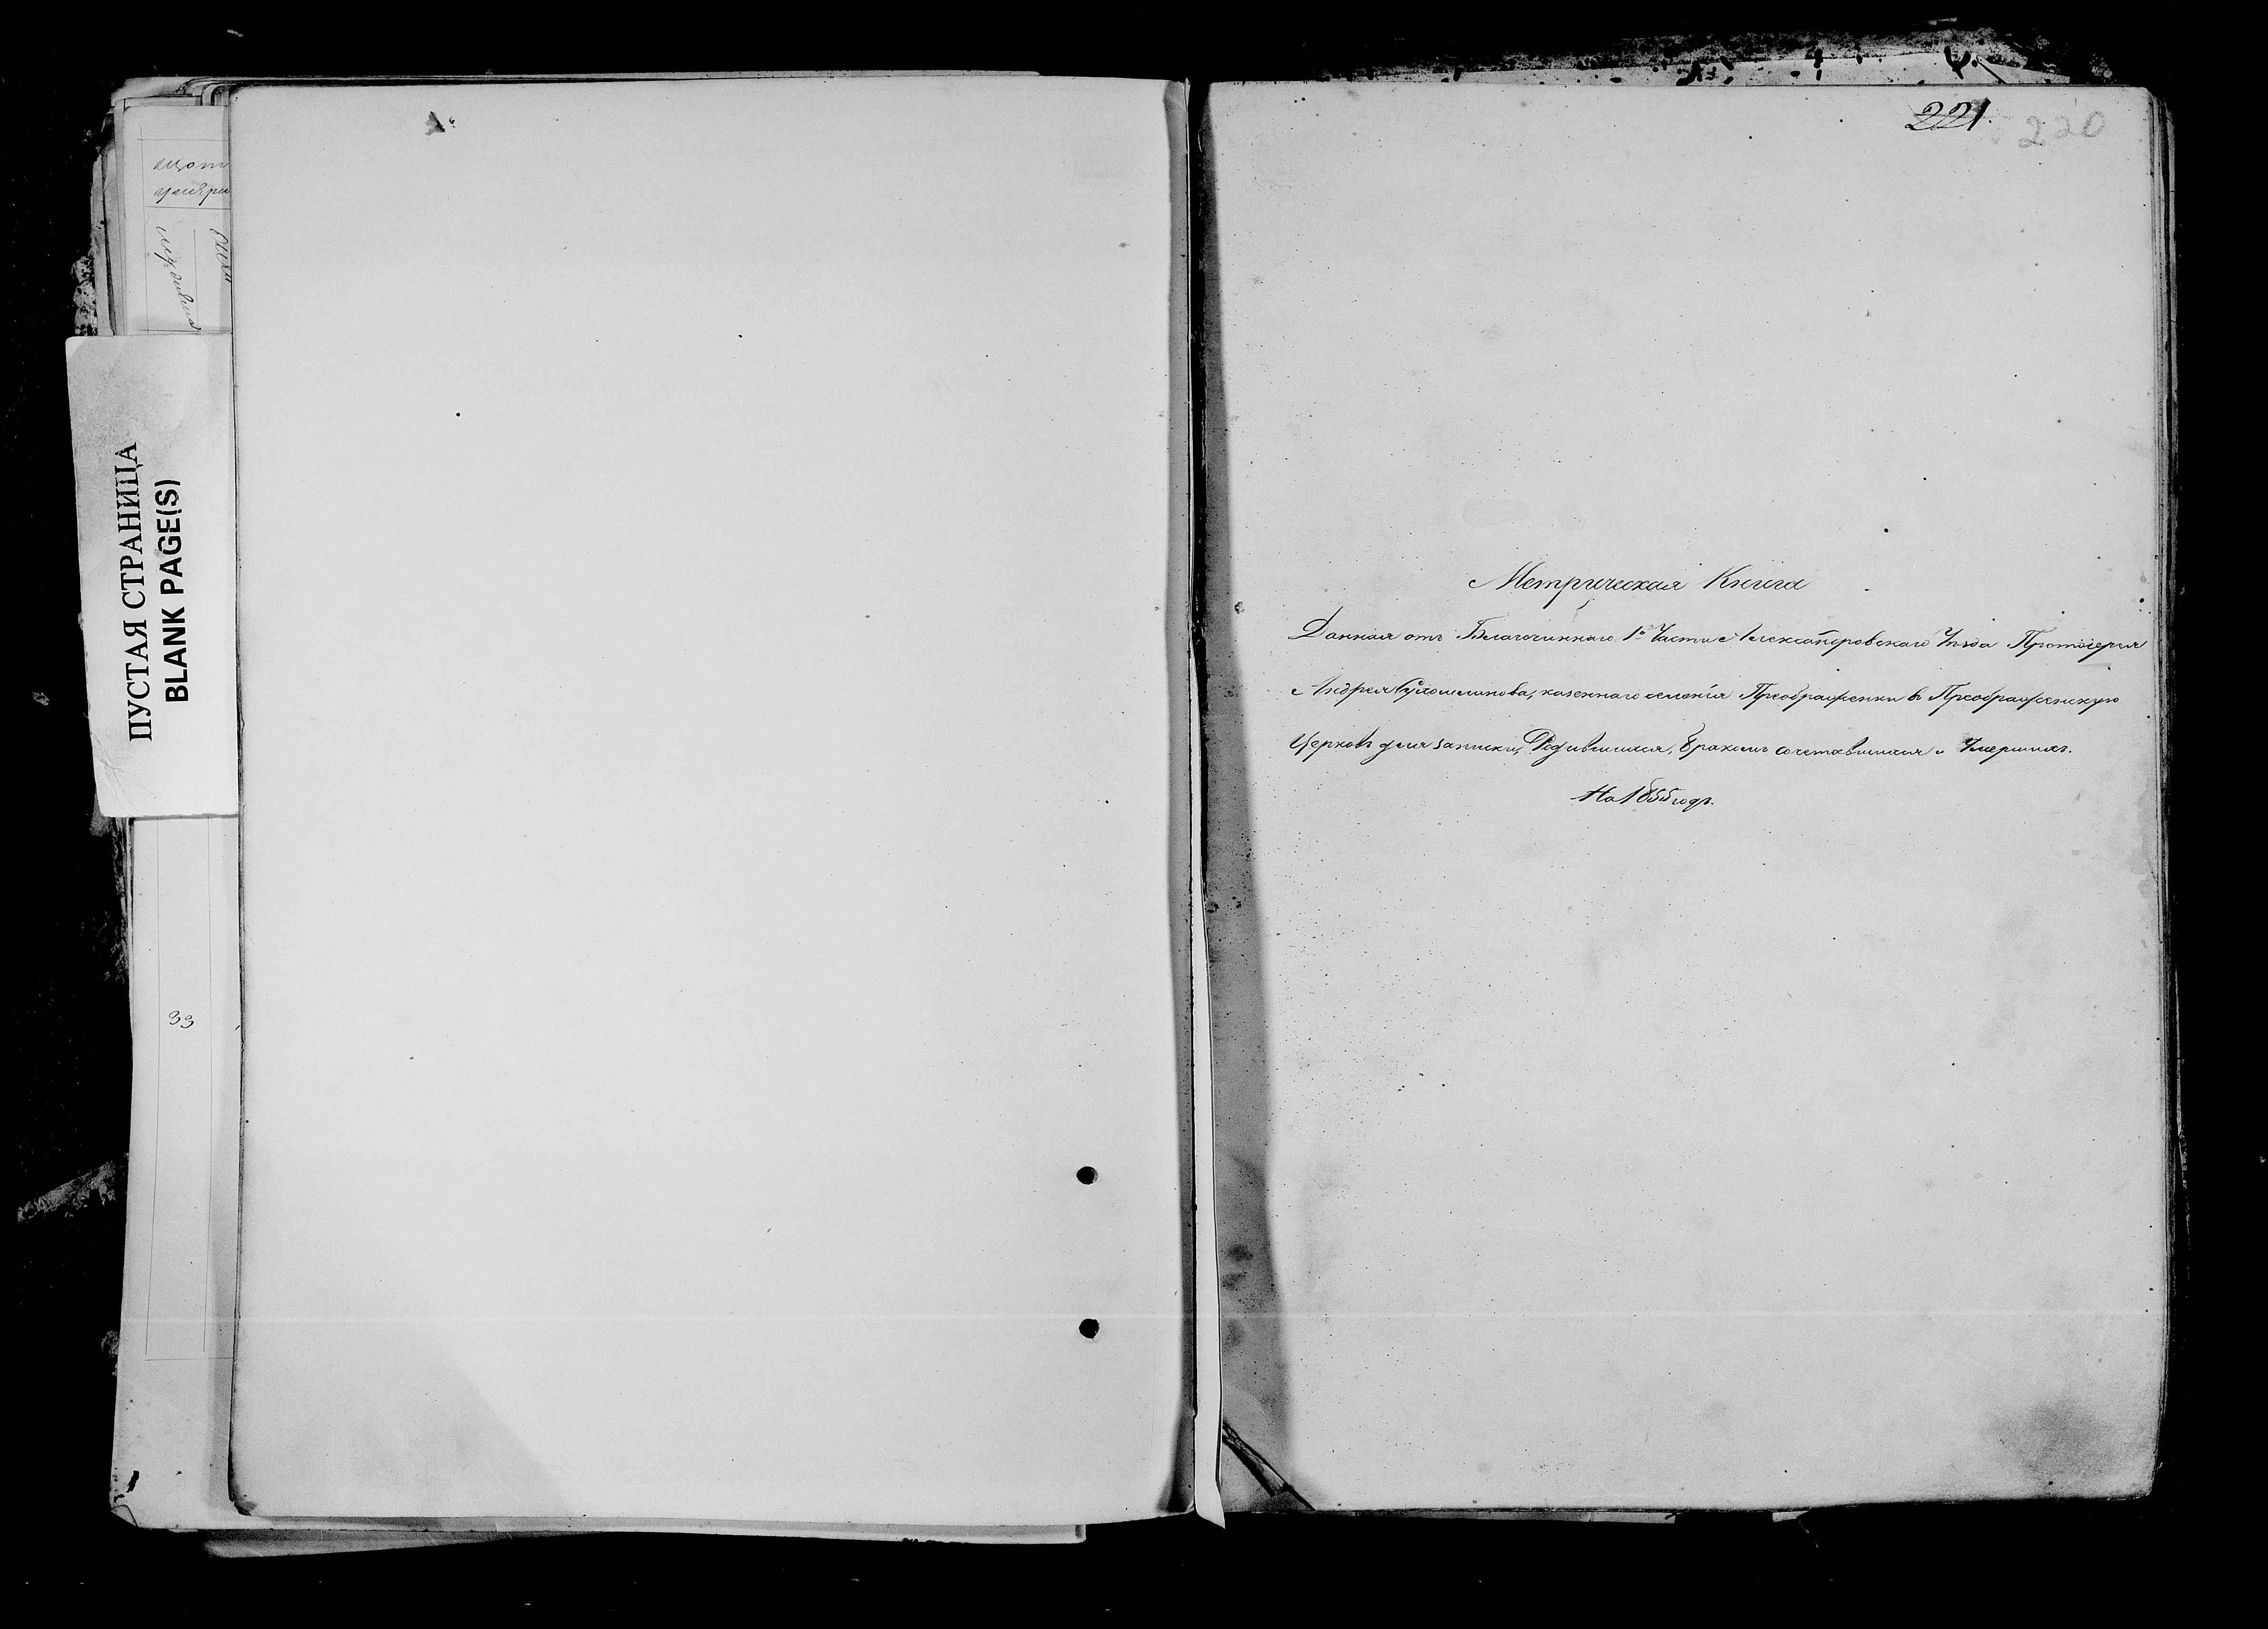 ПУСТАЯ СТРАНИЦА
BLANK PAGE(S)
33
221.
220
Метрическая Книга
Данная отъ Благочиннаго 1й Части Александровскаго Уѣзда Протоіерея
Андрея Сухомлинова, казеннаго селенія Преображенки въ Преображенскую
Церковь для записки, Родившихся, бракомъ сочетавшихся и Умершихъ.
На 1855 годъ.